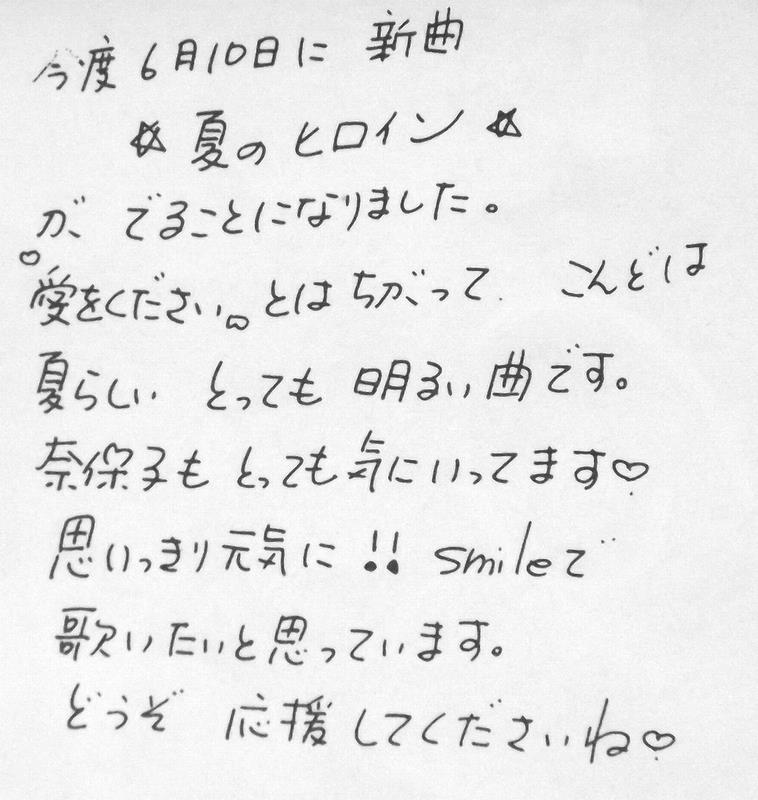 今度6月10日に 新曲
☆ 夏のヒロイン ☆
が、でることになりました。
♡愛をください。♡とはちがって こんどは
夏らしい とっても 明るい 曲です。
奈保子も とっても気にいってます♡
思いっきり元気に!! smileで
歌いたいと思っています。
どうぞ 応援してくださいね♡